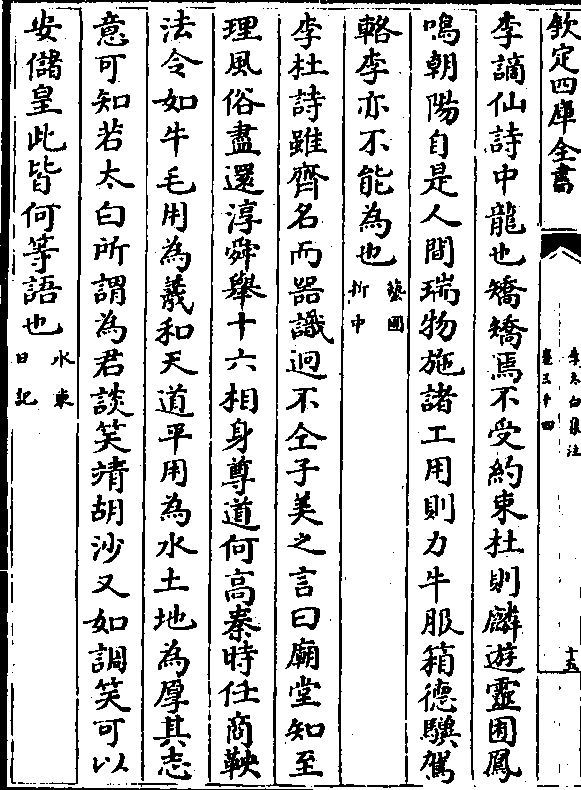 欽定四庫全書
李太白集注
卷三十四
十五
李謫仙詩中龍也矯矯焉不受約束杜則麟遊靈囿鳳
鳴朝陽自是人間瑞物施諸工用則力牛服箱德驥駕
輅李亦不能為也藝圃折中
李杜詩雖齊名而器識迥不仝子美之言曰廟堂知至
理風俗盡還淳舜舉十六相身尊道何高秦時任商鞅
法令如牛毛用為羲和天道平用為水土地為厚其志
意可知若太白所謂為君談笑靖胡沙又如調笑可以
安儲皇此皆何等語也水東日記